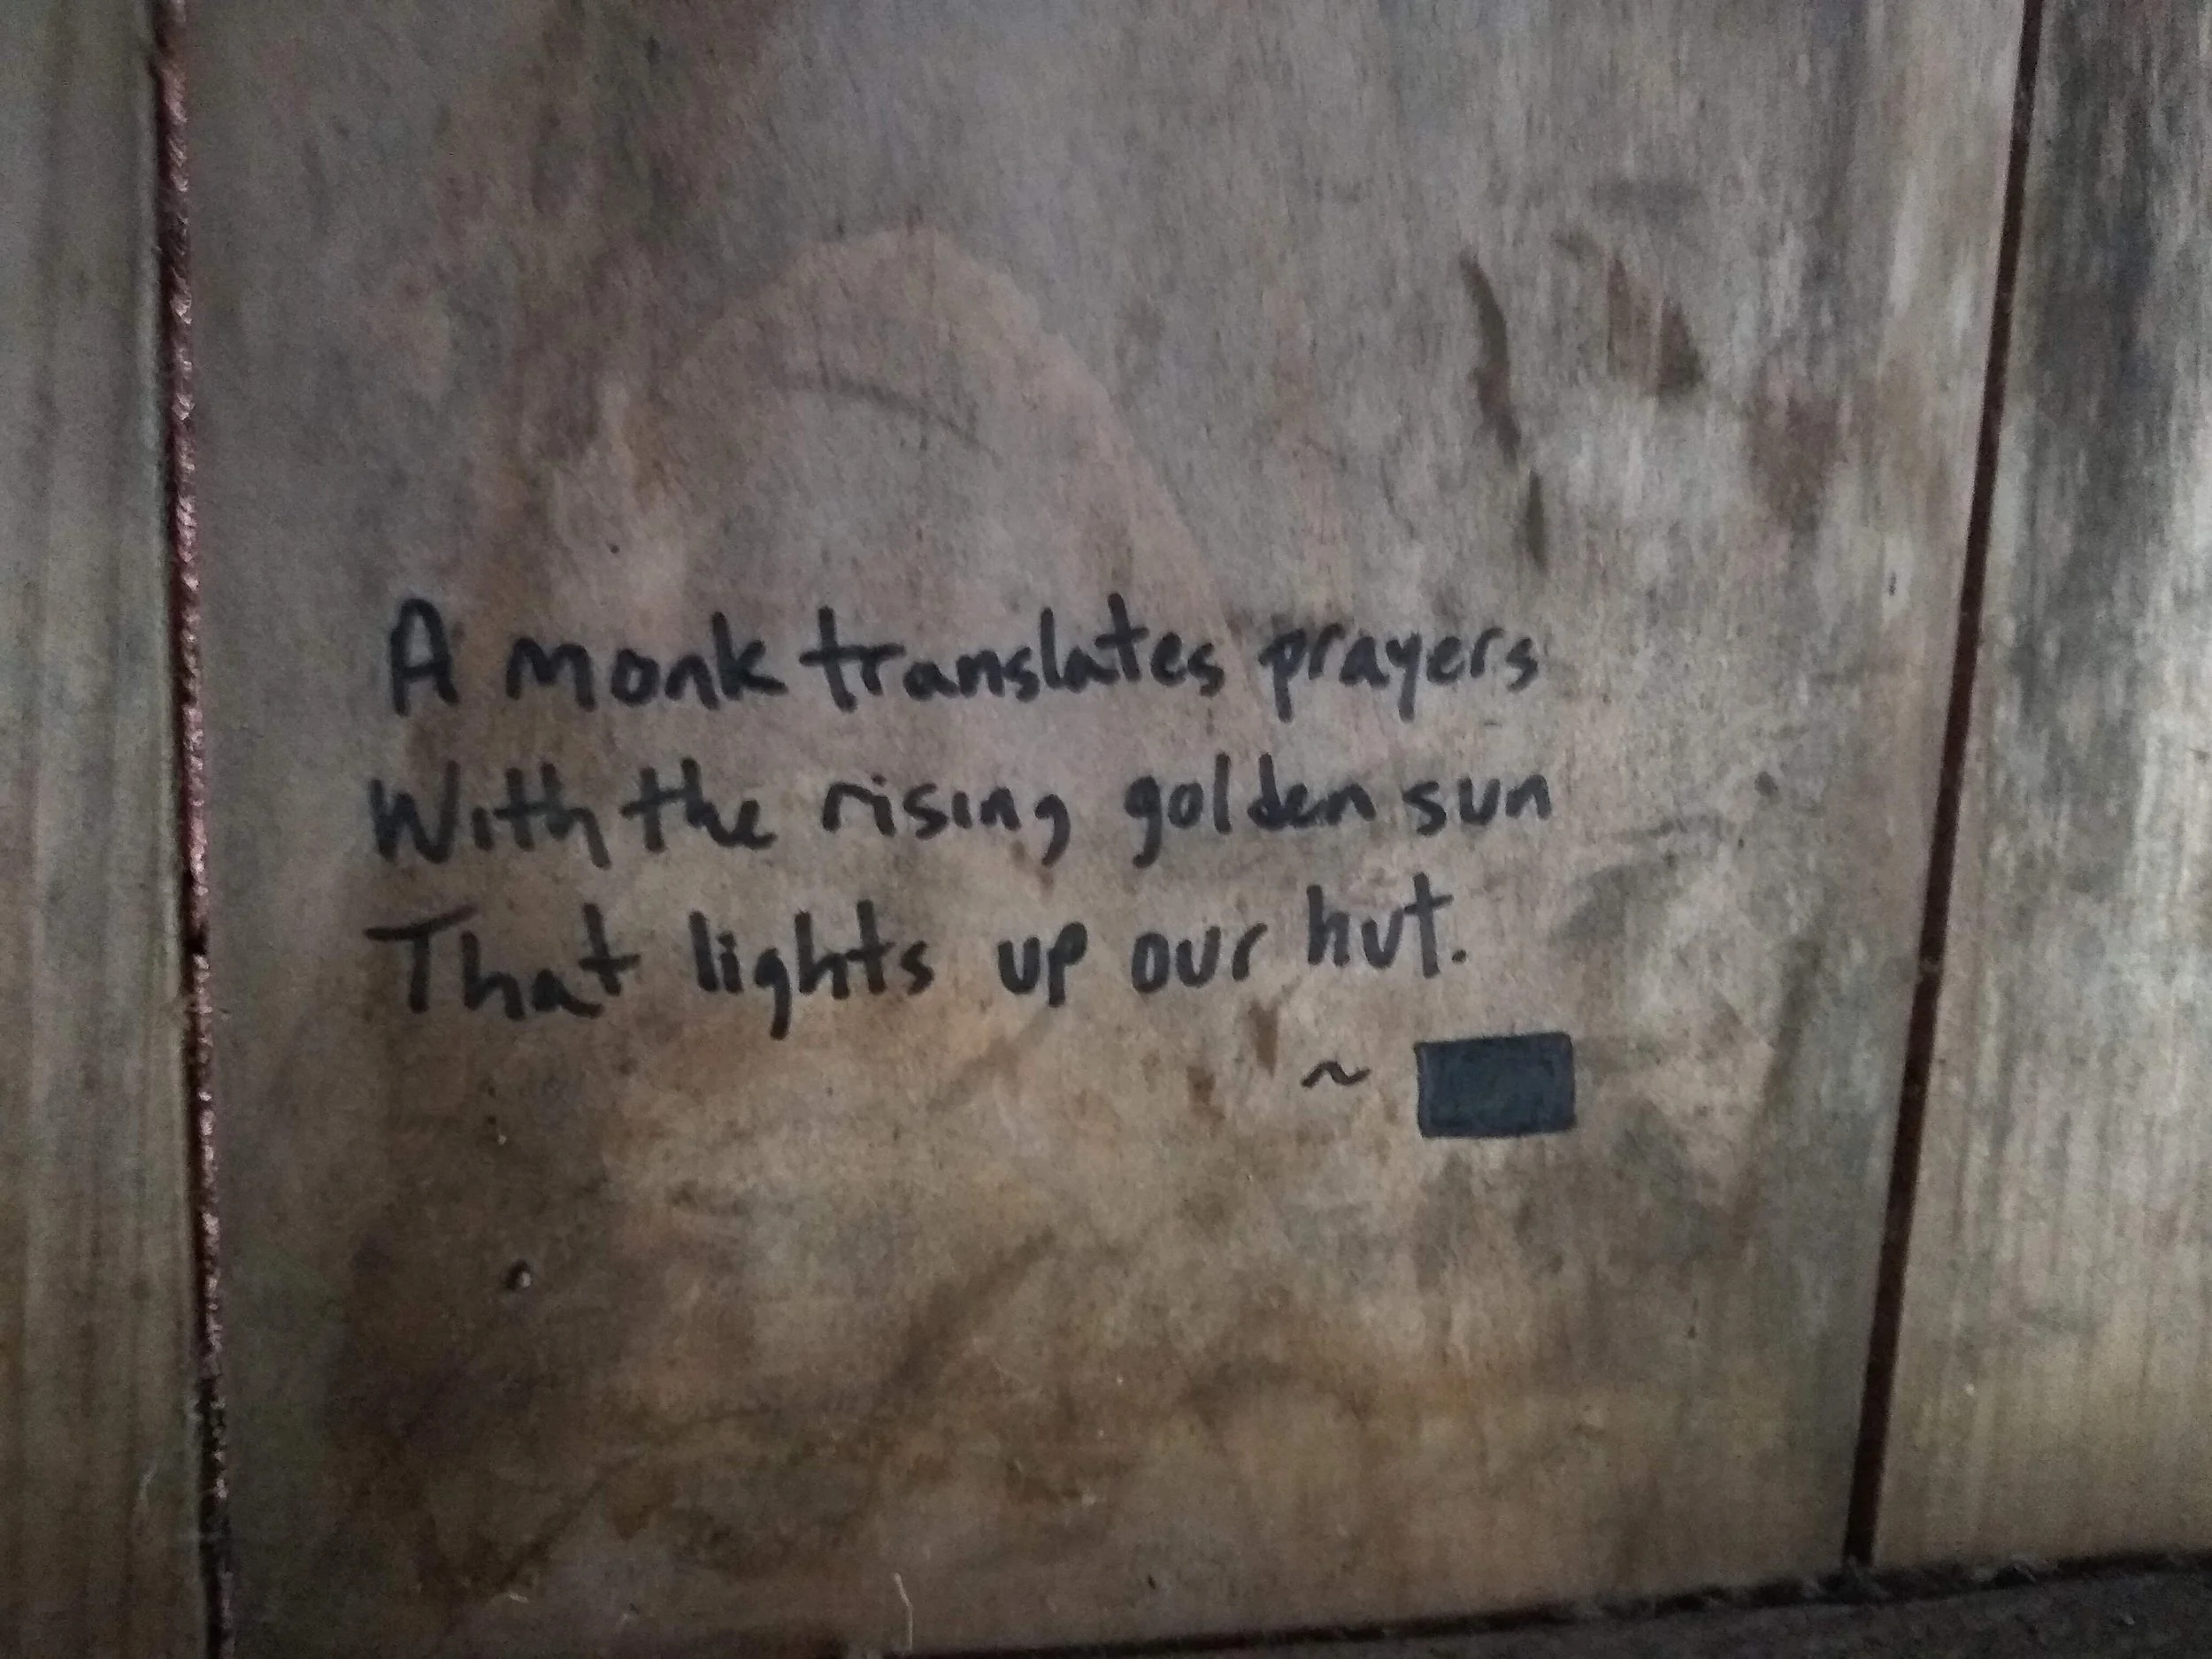 A monk translates prayers
With the rising golden sun
That lights up our hut.
~